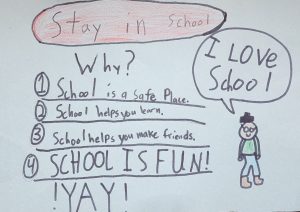 Stay in School
Why?
I LOVE
School
1 School is a Safe Place.
2 School helps you learn.
3 School helps you make friends.
4 SCHOOL IS FUN!
!YAY!